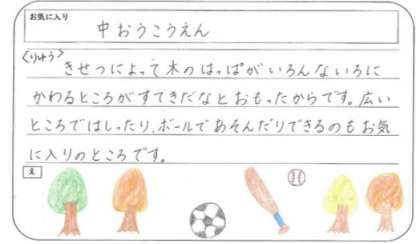 お気に入り
中おうこうえん
<りゆう>
きせつによって木のはっぱがいろんないろに
かわるところがすてきだなとおもったからです。広い
ところではしったり、ボールであそんだりできるのもお気
に入りのところです。
え